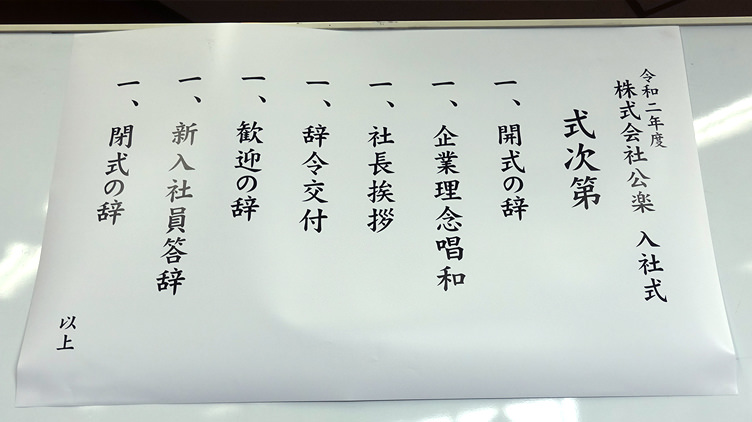 令和二年度
株式会社公楽 入社式
式次第
一、開式の辞
一、企業理念唱和
一、社長挨拶
一、辞令交付
一、歓迎の辞
一、新入社員答辞
一、閉式の辞
以上